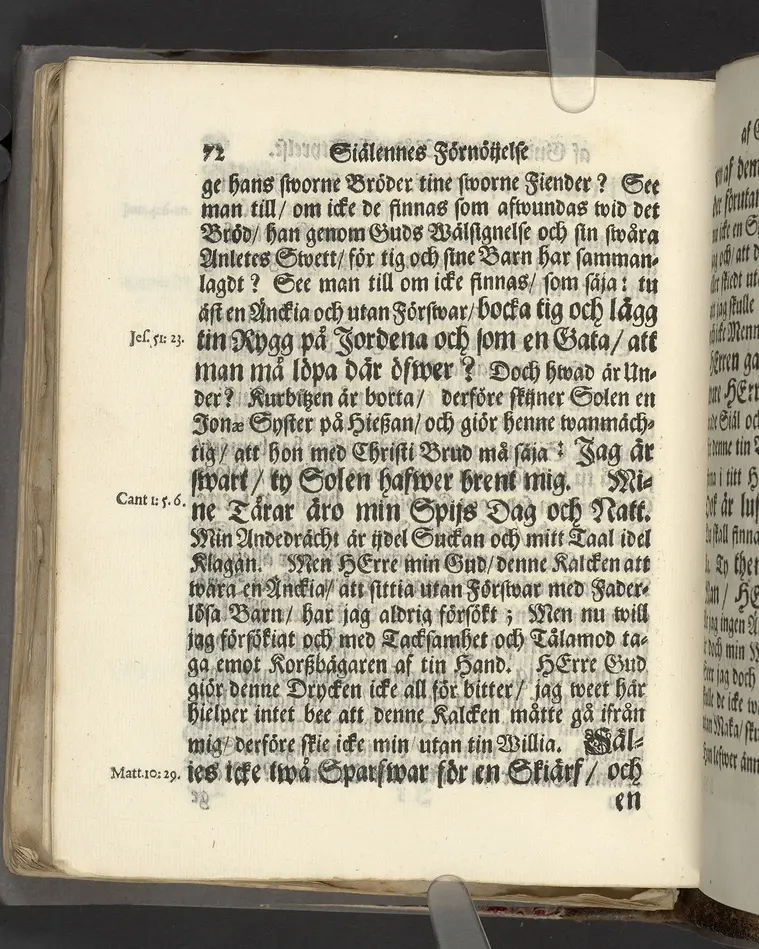 72 Siälennes Förnöijelse
ge hans sworne Bröder tine sworne Fiender? See
man till/ om icke de finnas som afwundas wid det
Bröd/ han genom Guds Wälsignelse och sin swåra
Anletes Swett/ för tig och sine Barn har samman-
lagdt? See man till om icke finnas/ som säja: tu
äst en Änckia och utan Förswar/ bocka tig och lägg
Jes. 51: 23. tin Rygg på Jordena och som en Gata/ att
man må löpa där öfwer? Doch hwad är Un-
der? Kurbitzen är borta/ derföre skijner Solen en
Jonæ Syster på Hießan/ och giör henne wanmäch-
tig/ att hon med Christi Brud må säja: Jag är
swart/ ty Solen hafwer brent mig. Mi-
Cant 1: 5. 6. ne Tårar äro min Spijs Dag och Natt.
Min Andedrächt är ijdel Suckan och mitt Taal idel
Klagan. Men HErre min Gud/ denne Kalcken att
wara en Änckia/ att sittia utan Förswar med Fader-
lösa Barn/ har jag aldrig försökt; Men nu will
jag försökiat och med Tacksamhet och Tålamod ta-
ga emot Korßbägaren af tin Hand. HErre Gud
giör denne Drycken icke all för bitter/ jag weet här
hielper intet bee att denne Kalcken måtte gå ifrån
mig/ derföre skie icke min/ utan tin Willia. Säl-
Matt. 10: 29. ies icke twå Sparfwar för en Skiärf/ och
en
af
af dem
der förutan
och/ att d
skiedt ut
jag skulle
Menn
HErren ga
HErr
Siäl oc
denne tin
i titt H
är lus
skall finna
Ty the
Man/ HE
jag ingen Ä
doch min M
jag doch
de icke w
Maka/ sku
lefwer änn